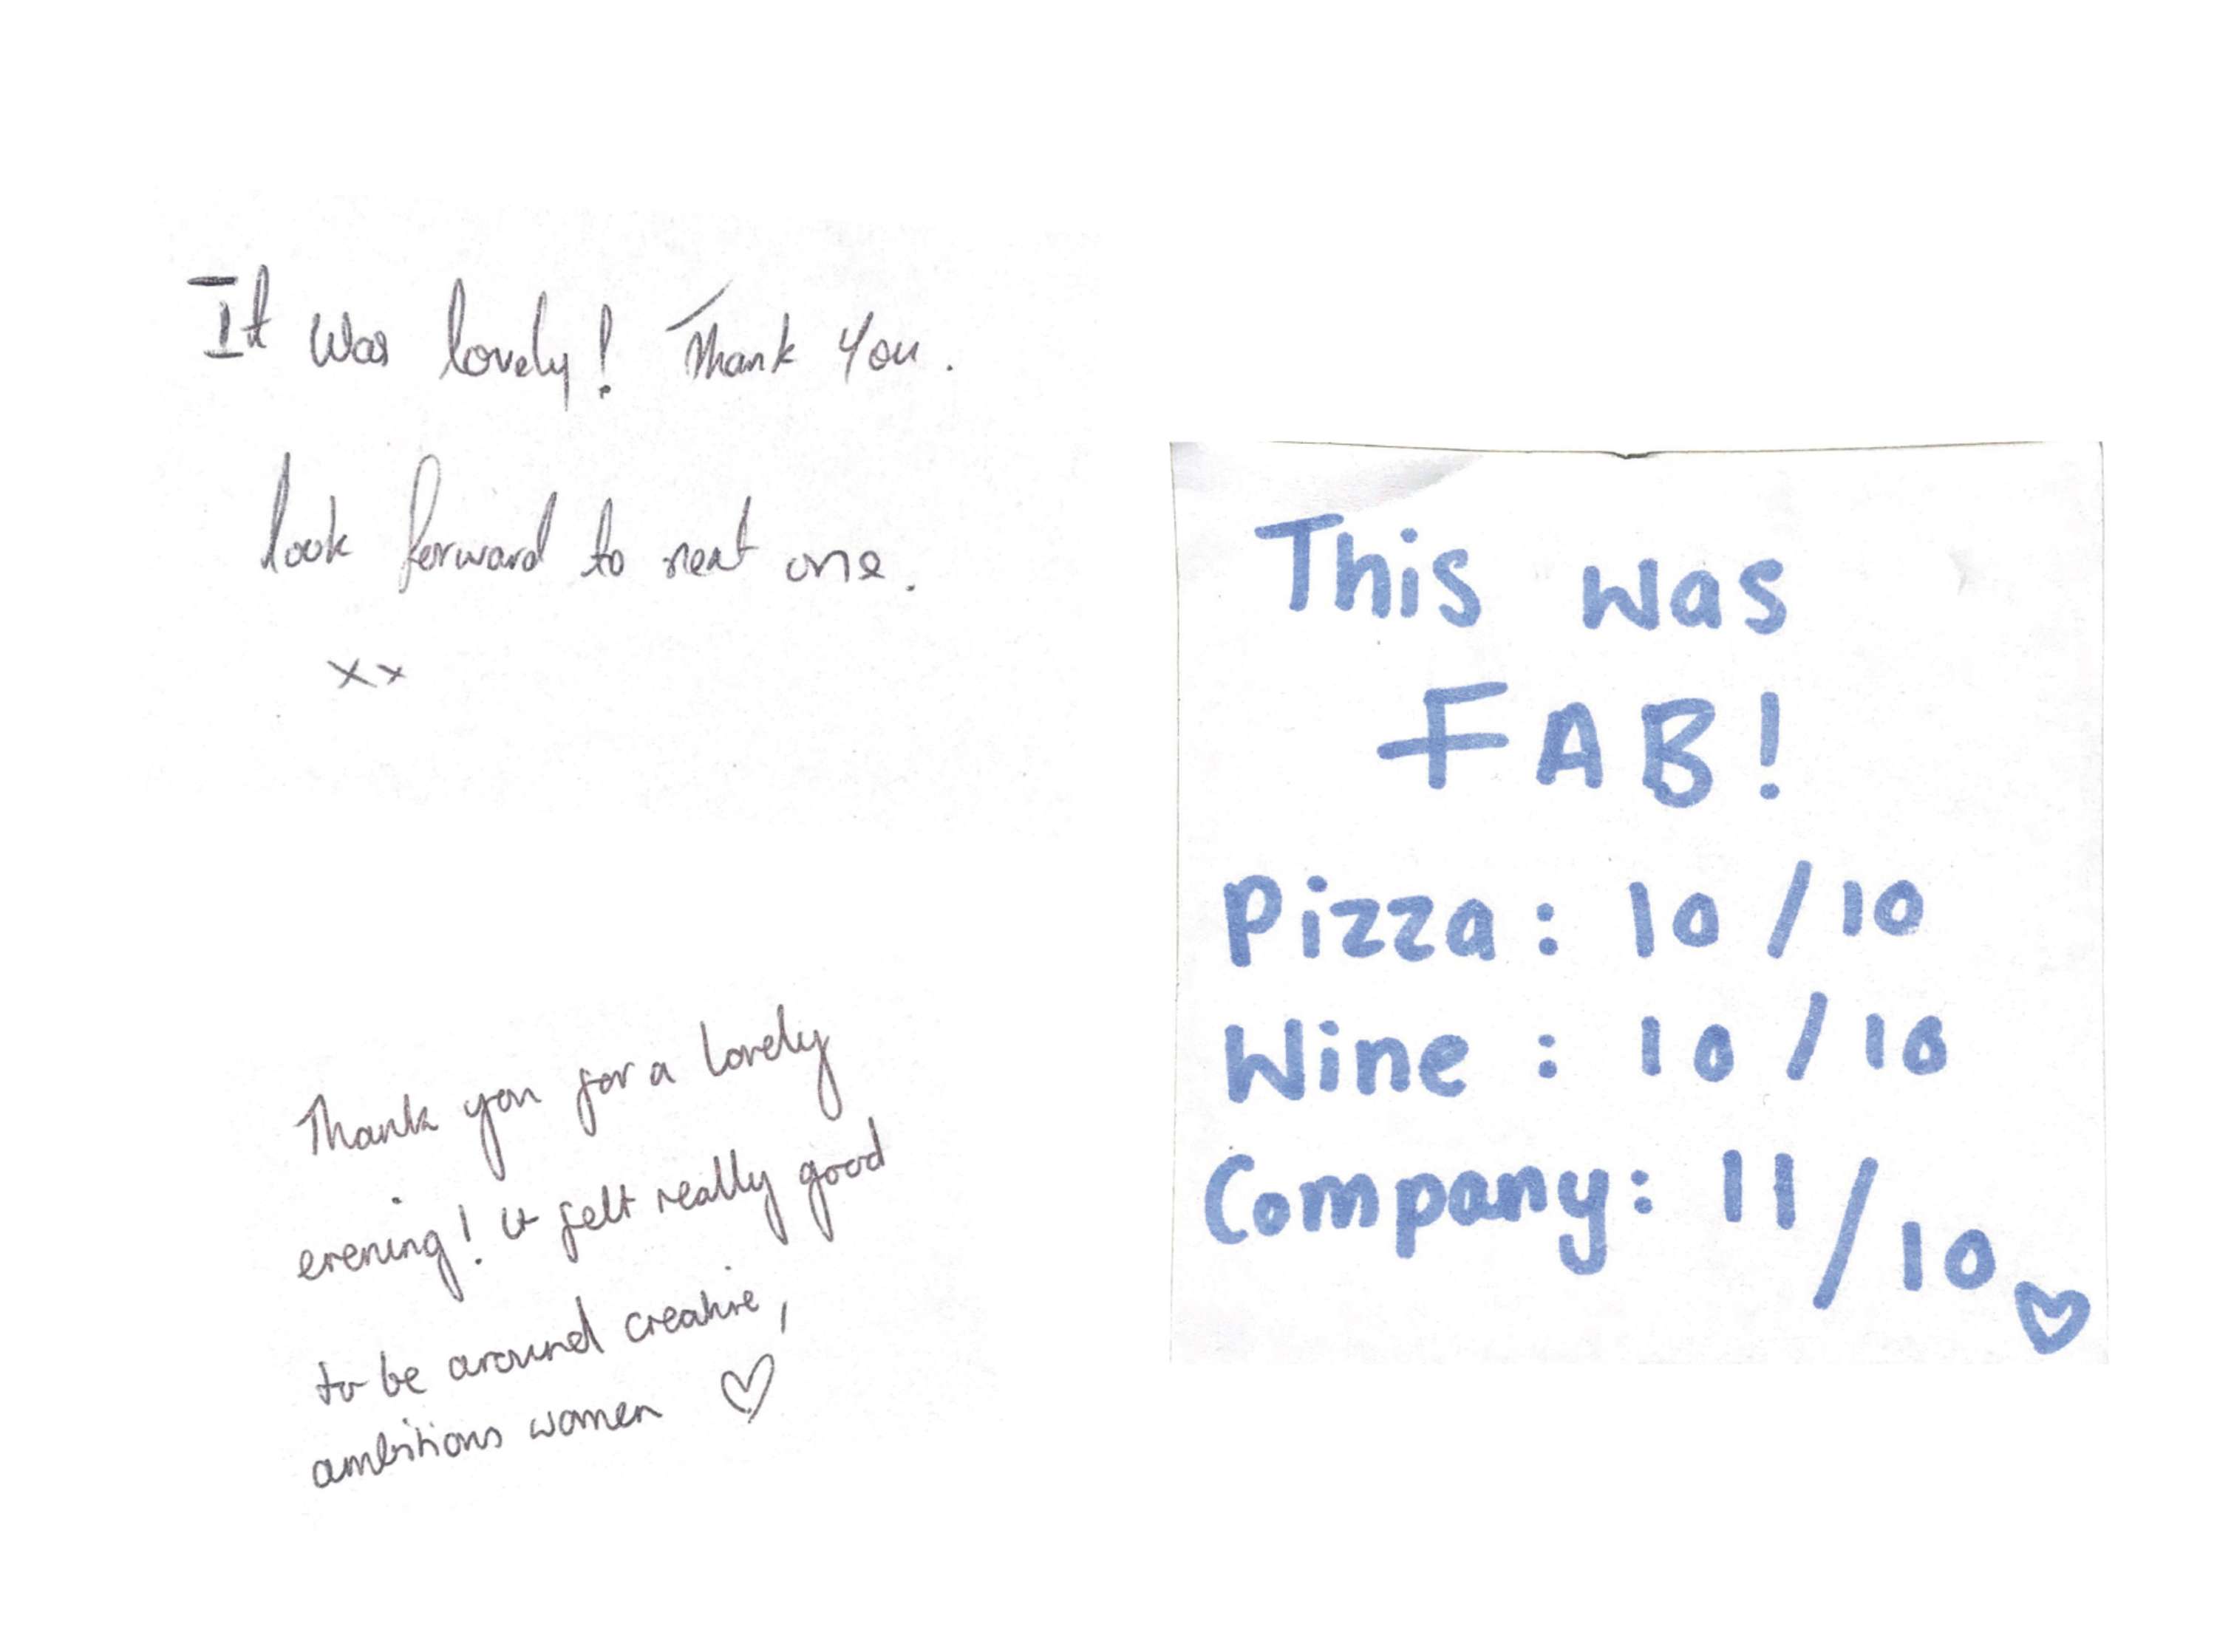 It was lovely! Thank You.
look forward to next one.
xx
Thank you for a lovely
evening! it felt really good
to be around creative,
ambitious women ♡
This was
FAB!
Pizza: 10/10
Wine: 10/10
Company: 11/10 ♡